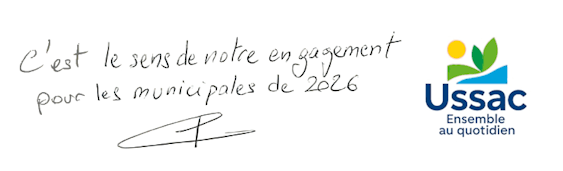 C'est le sens de notre engagement
pour les municipales de 2026
Ussac
Ensemble
au quotidien